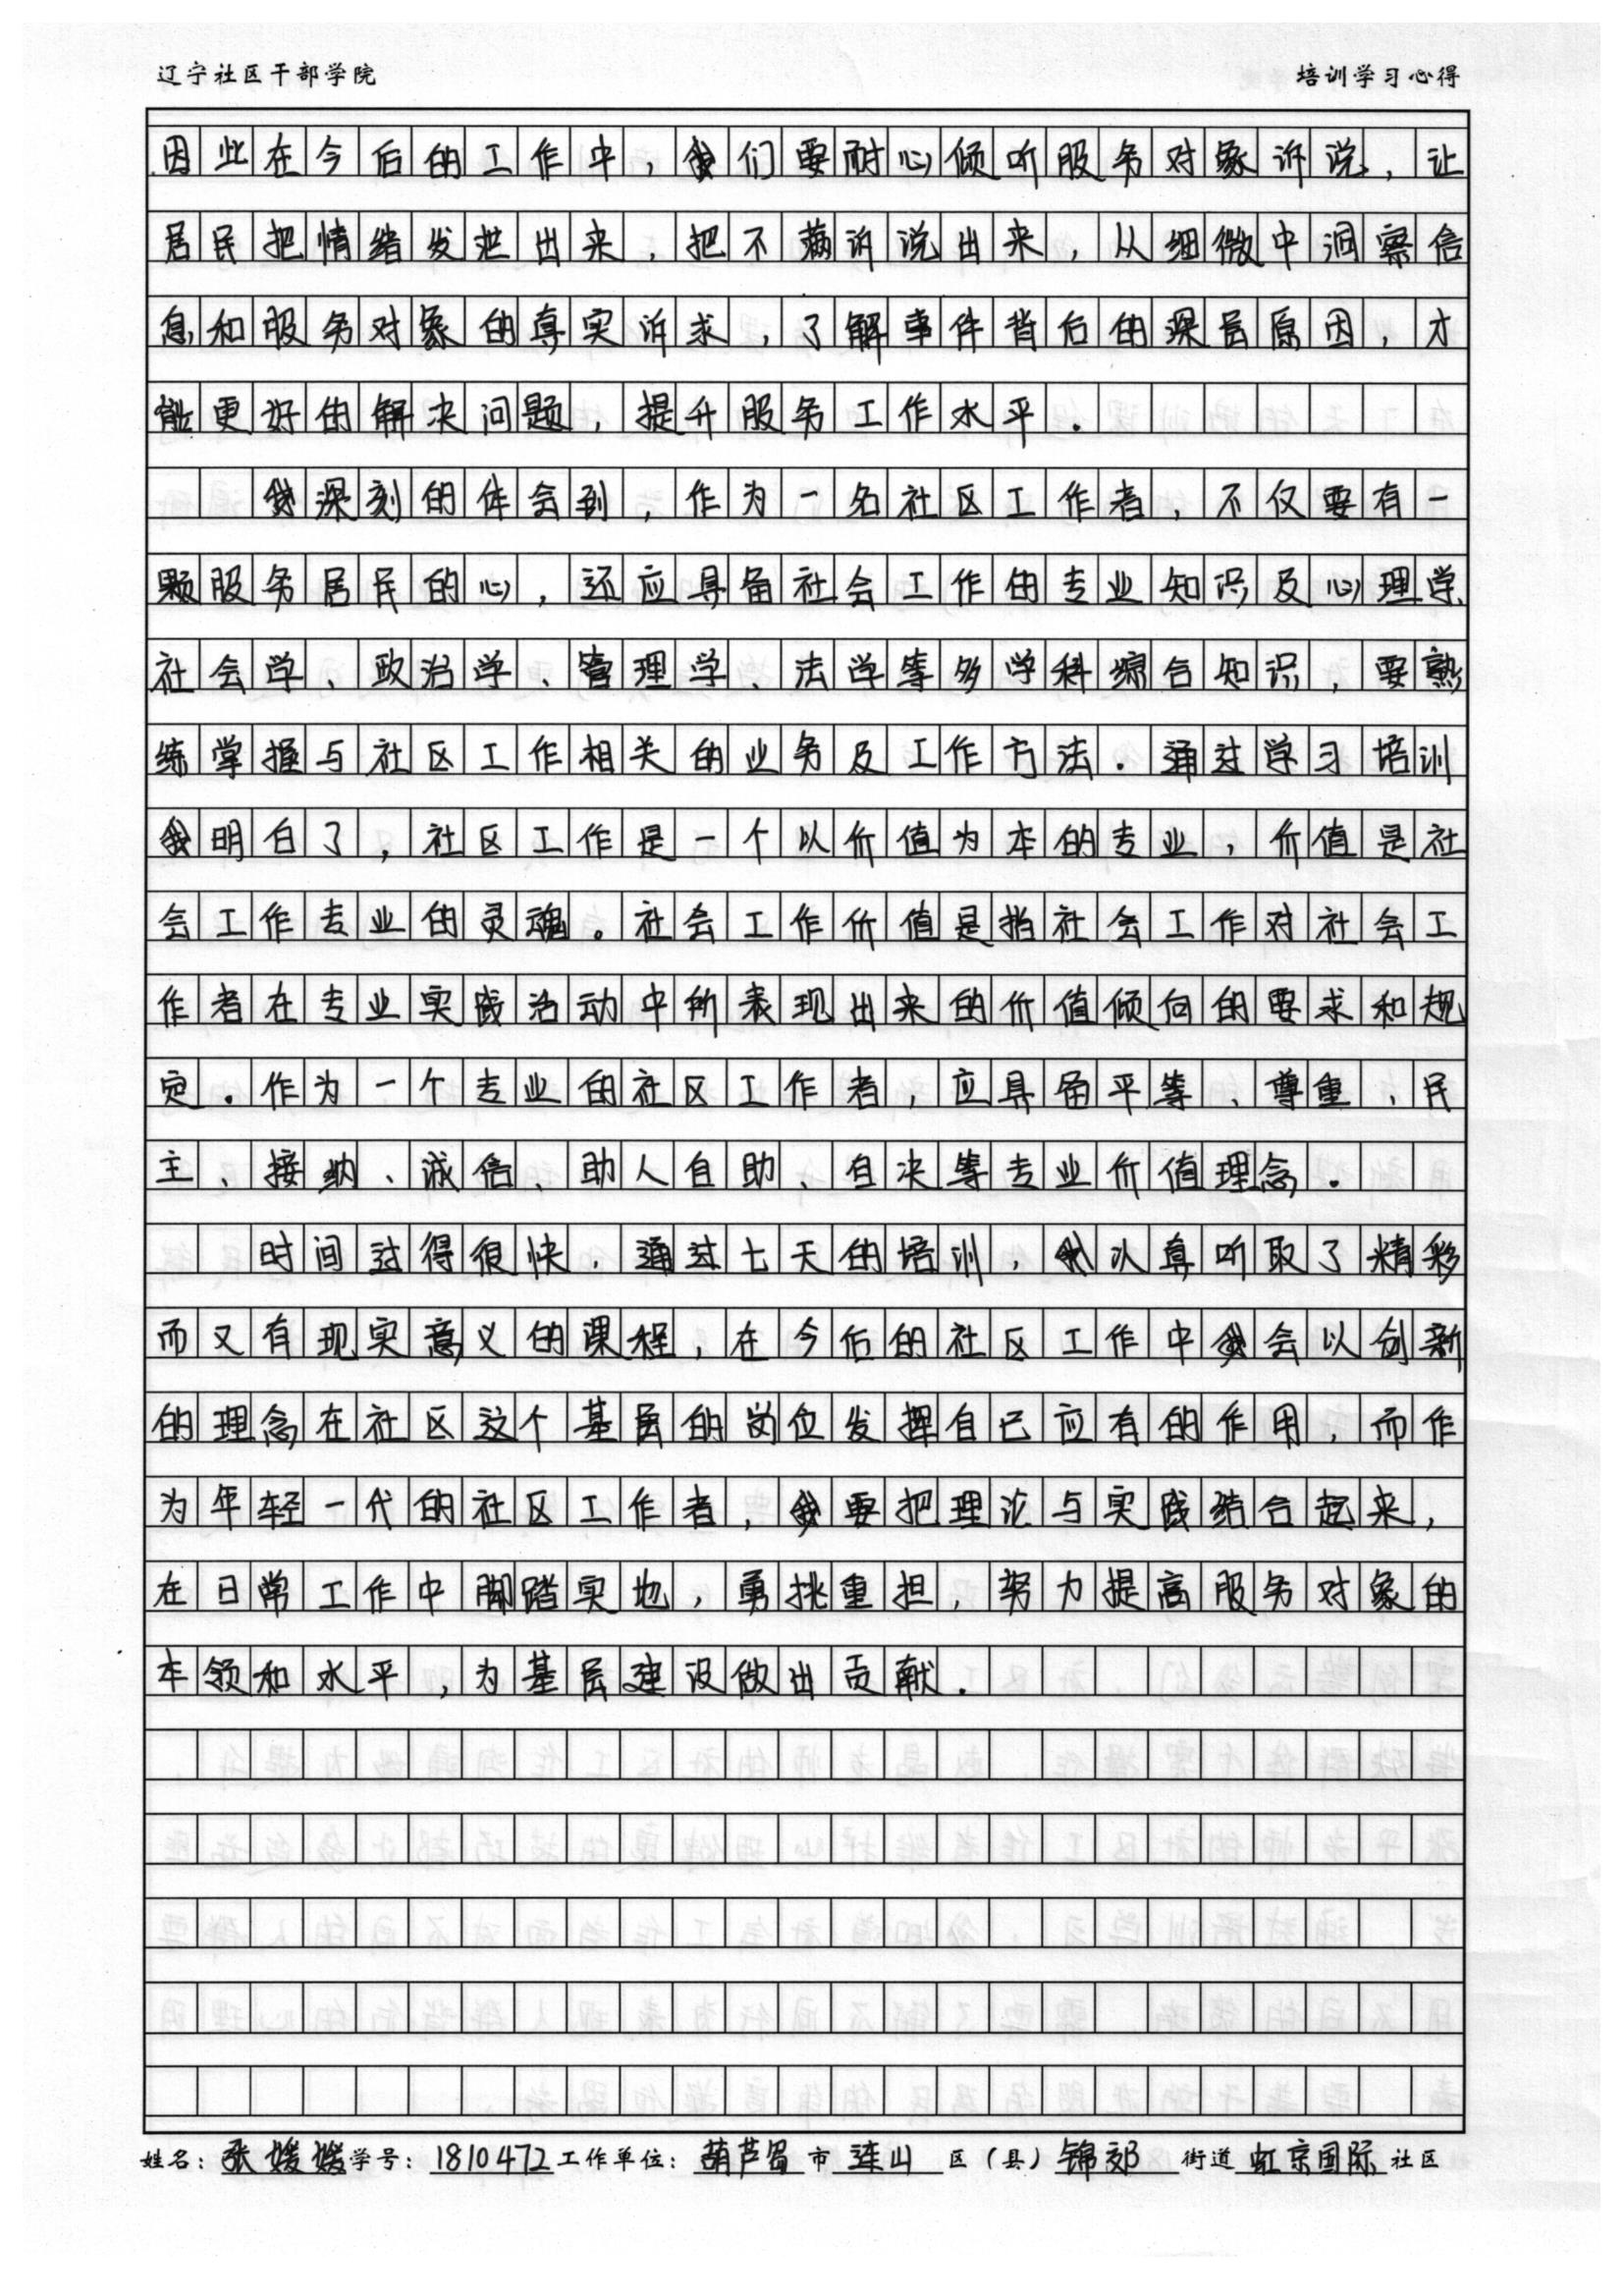 辽宁社区干部学院 培训学习心得
因此在今后的工作中，我们要耐心倾听服务对象诉说，让
居民把情绪发泄出来，把不满诉说出来，从细微中洞察信
息和服务对象的真实诉求，了解事件背后的深层原因，才
能更好的解决问题，提升服务工作水平.
我深刻的体会到，作为一名社区工作者，不仅要有一
颗服务居民的心，还应具备社会工作的专业知识及心理学、
社会学、政治学、管理学、法学等多学科综合知识，要熟
练掌握与社区工作相关的业务及工作方法.通过学习培训
我明白了，社区工作是一个以价值为本的专业，价值是社
会工作专业的灵魂。社会工作价值是指社会工作对社会工
作者在专业实践活动中所表现出来的价值倾向的要求和规
定.作为一个专业的社区工作者，应具备平等、尊重、民
主、接纳、诚信、助人自助、自决等专业价值理念.
时间过得很快.通过七天的培训，我认真听取了精彩
而又有现实意义的课程，在今后的社区工作中我会以创新
的理念在社区这个基层的岗位发挥自己应有的作用，而作
为年轻一代的社区工作者，我要把理论与实践结合起来，
在日常工作中脚踏实地，勇挑重担，努力提高服务对象的
本领和水平，为基层建设做出贡献.
姓名：张媛媛 学号：1810472 工作单位：葫芦岛市连山区（县）锦郊街道虹京国际社区